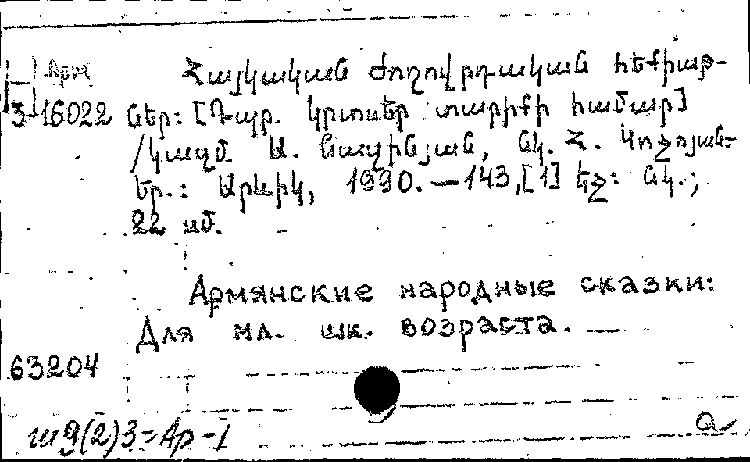 Արմ
Հայկական ժողովրդական հեքիաթ-
3-16022 ներ: [Դպր. կրտսեր տարիքի համար]
/Կազմ. Ա. Նազինյան, նկ. Հ. 
Եր.: Արևիկ, 1990. — 143,[1] եջ: նկ.;
22 սմ.
Армянские народные сказки:
Для мл. шк. возраста. —
63204
ш9(2)3=Ар-1
а